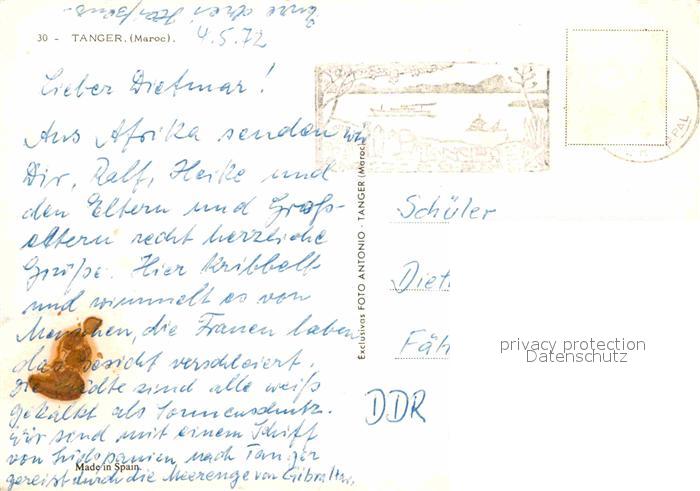 30 - TANGER. (Maroc).
4.5.72
Lieber Dietmar!
Aus Afrika senden wir
Dir, Ralf, Heike und
den Eltern und Groß-
eltern recht herzliche
Grüße. Hier kribbelt
und wimmelt es von
Menschen, die Frauen haben
das Gesicht verschleiert.
Die Städte sind alle weiß
gekalkt als Sonnenschutz.
Wir sind mit einem Schiff
von Südspanien nach Tanger
gereist durch die Meerenge von Gibraltar.
Made in Spain.
Exclusivas FOTO ANTONIO - TANGER (Maroc)
Schüler
Diet
Fäh
DDR
privacy protection
Datenschutz